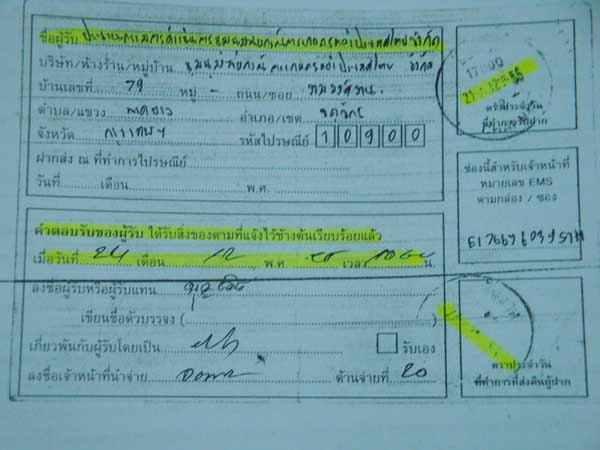 ชื่อผู้รับ ประธานกรรมการดำเนินการชุมนุมสหกรณ์การเกษตรแห่งประเทศไทย จำกัด
บริษัท/ห้างร้าน/หมู่บ้าน ชุมนุมสหกรณ์การเกษตรแห่งประเทศไทย จำกัด
บ้านเลขที่ 79 หมู่ - ถนน/ซอย งามวงศ์วาน
ตำบล/แขวง ลาดยาว อำเภอ/เขต จตุจักร
จังหวัด กรุงเทพฯ รหัสไปรษณีย์ 10900
ฝากส่ง ณ ที่ทำการไปรษณีย์
วันที่ เดือน พ.ศ.
17000
ตราประจำวัน
ที่ทำการรับฝาก
ช่องนี้สำหรับเจ้าหน้าที่
หมายเลข EMS
ตามกล่อง / ซอง
คำตอบรับของผู้รับ ได้รับสิ่งของตามที่แจ้งไว้ข้างต้นเรียบร้อยแล้ว
เมื่อวันที่ 24 เดือน 12 พ.ศ. เวลา น.
ลงชื่อผู้รับหรือผู้รับแทน
เขียนชื่อตัวบรรจง (
เกี่ยวพันกับผู้รับโดยเป็น รับเอง
ลงชื่อเจ้าหน้าที่นำจ่าย ด้านจ่ายที่ 20
ตราประจำวัน
ที่ทำการที่ส่งคืนผู้ฝาก